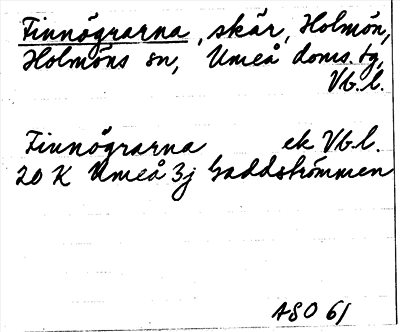 Finnögrarna, skär, Holmön,
Holmöns sn, Umeå doms. tg,
Vb.l.
Finnögrarna ek Vb.l.
20 K Umeå 3j Gaddströmmen
ASO 61